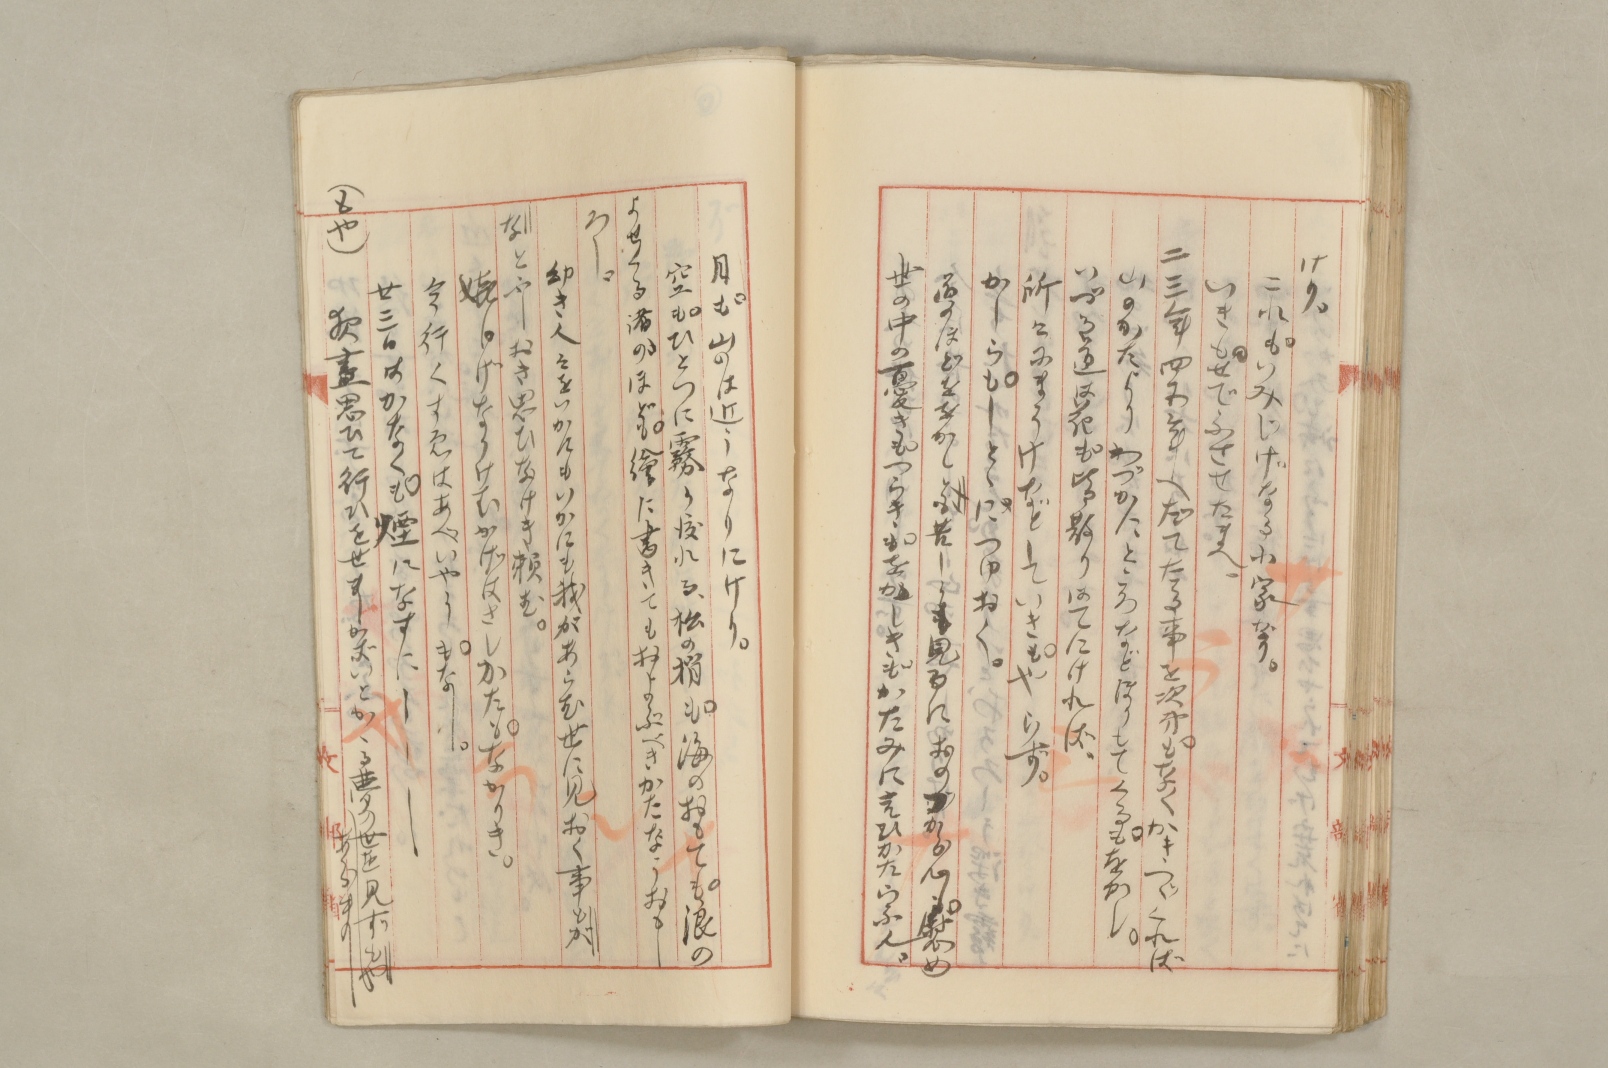 けり。
これも、いみじげなる小家なり。
いきもせでふせたまへ。
二三年四五年へだてたる事を次第もなくかきつゞくれば
山のかたよりわづかにところなどほりもてくるもをかし。
いづる道は花も皆散りはてにければ、
所にまうけなどしていきもやらず。
かしらもしとゞにつゆおく。
道のほどををかしう苦しうも見るにおのづから心も慰め
世の中の憂きもつらきもをかしきもかたみに言ひかたらふ人。
月も山のは近うなりにけり。
空もひとつに霧り渡れる、松の梢も海のおもても浪の
よせくる渚のほども繪に書きても及ぶべきかたなうおも
ろし。
幼き人々をいかにもいかにも我があらむ世に見おく事もが
なとふしおき思ひなげき頼む。
焼けなどしけむかげはさしかたもなかりき。
今行くすゑはあべいやうもなし。
廿三日はかなくも煙になすに———
夜晝思ひて行ひをせましかばいとかゝる夢の世を見ずもや
あらまし
(もや)
文部省
文部省